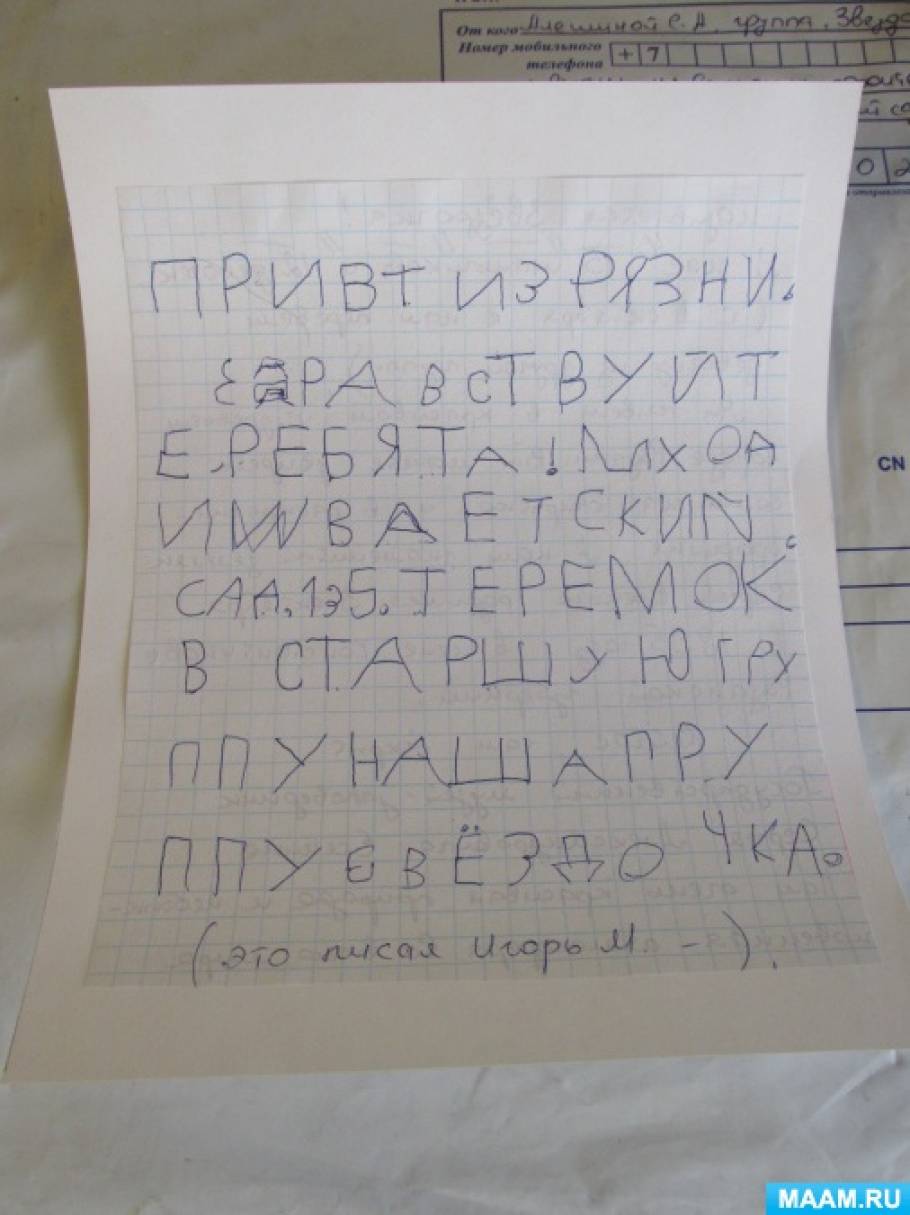 От кого Алешиной С.А. группа "Звездо
Номер мобильного
телефона +7
CN
ПРИВТ ИЗ РЯЗНИ.
РАВСТВУЙТ
Е, РЕБЯТА!
ЕТСКИЙ
САД.135. ТЕРЕМОК
В СТАРШУЮ ГРУ
ППУ НАША ГРУ
ППУ ЄВЁЗДОЧКА.
(это писал Игорь М. -).
MAAM.RU